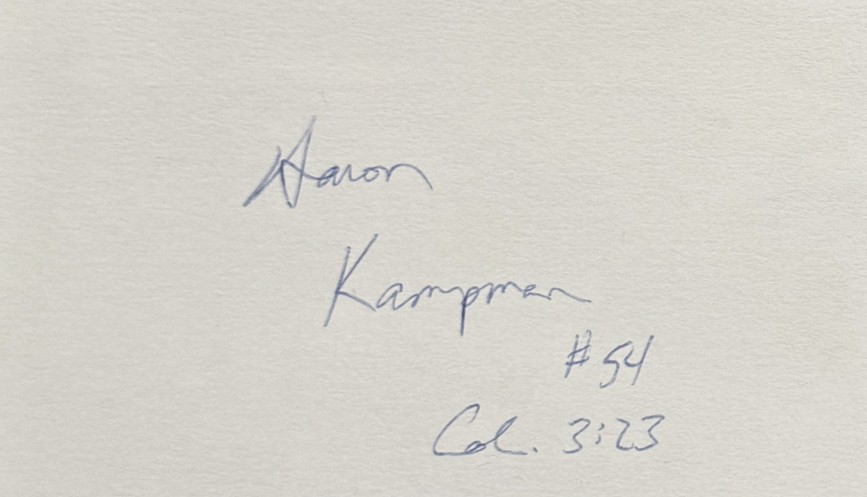 Aaron
Kampman
#54
Col. 3:23